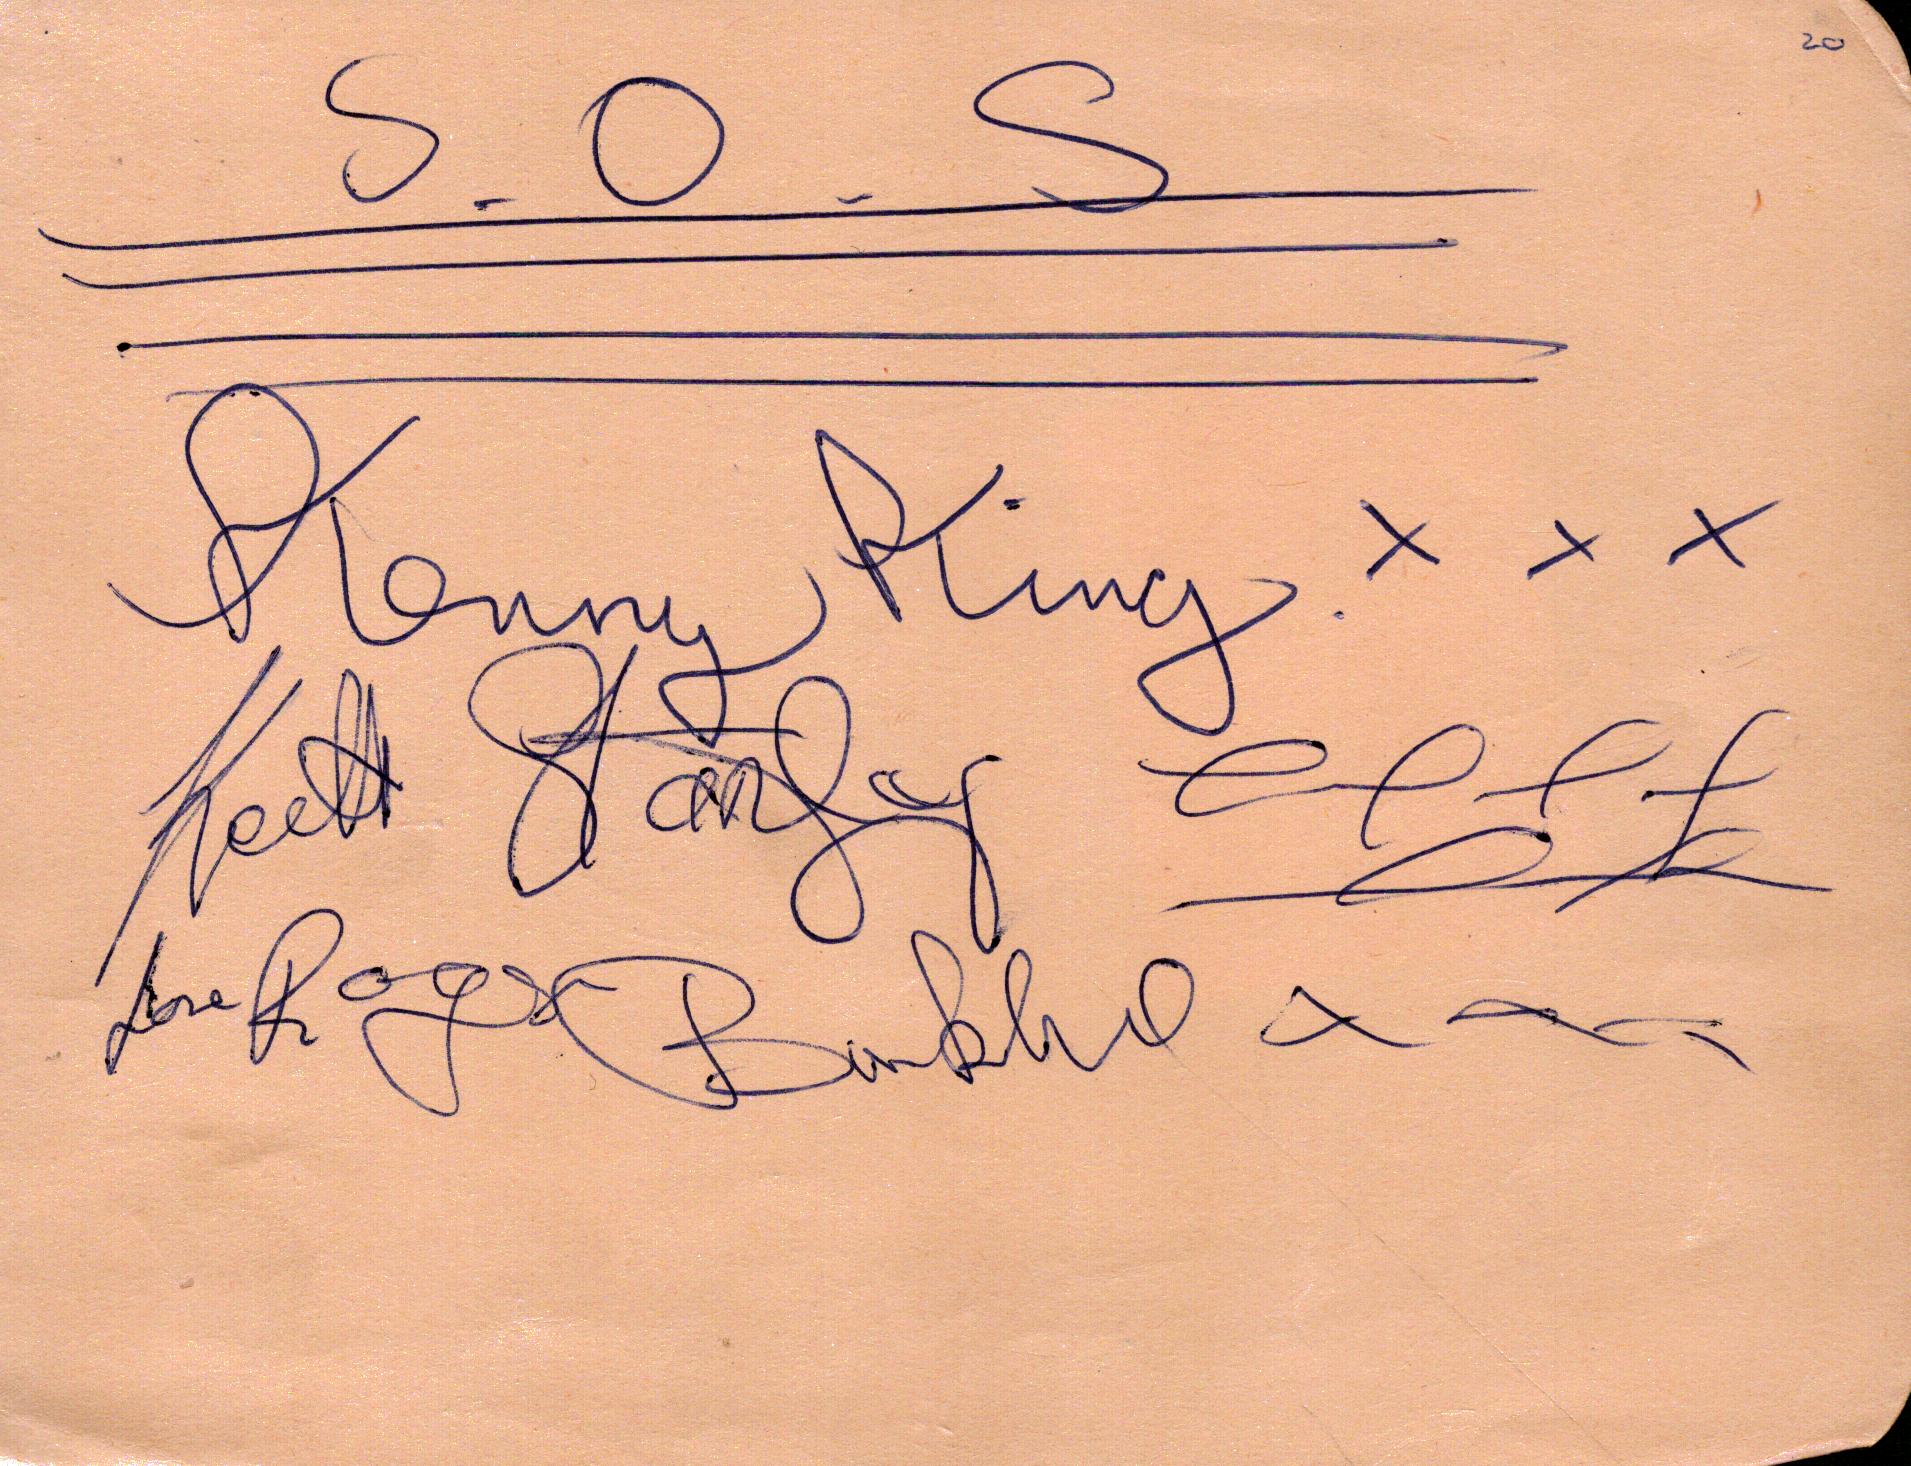 20
S. O. S
Kenny King. x x x
Keith Stanley
Love Roger x